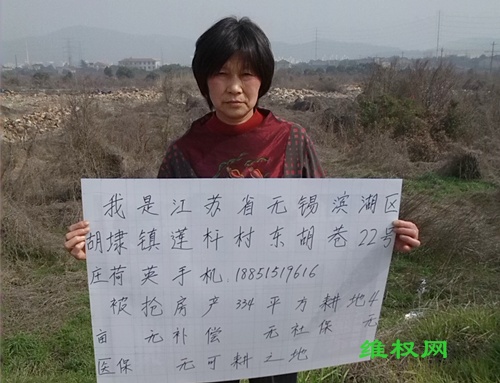 我是江苏省无锡滨湖区
胡埭镇莲杆村东胡巷22号
庄荷英手机.18851519616
被抢房产334平方耕地4
亩 元补偿 元社保 元
医保 元可耕之地
维权网